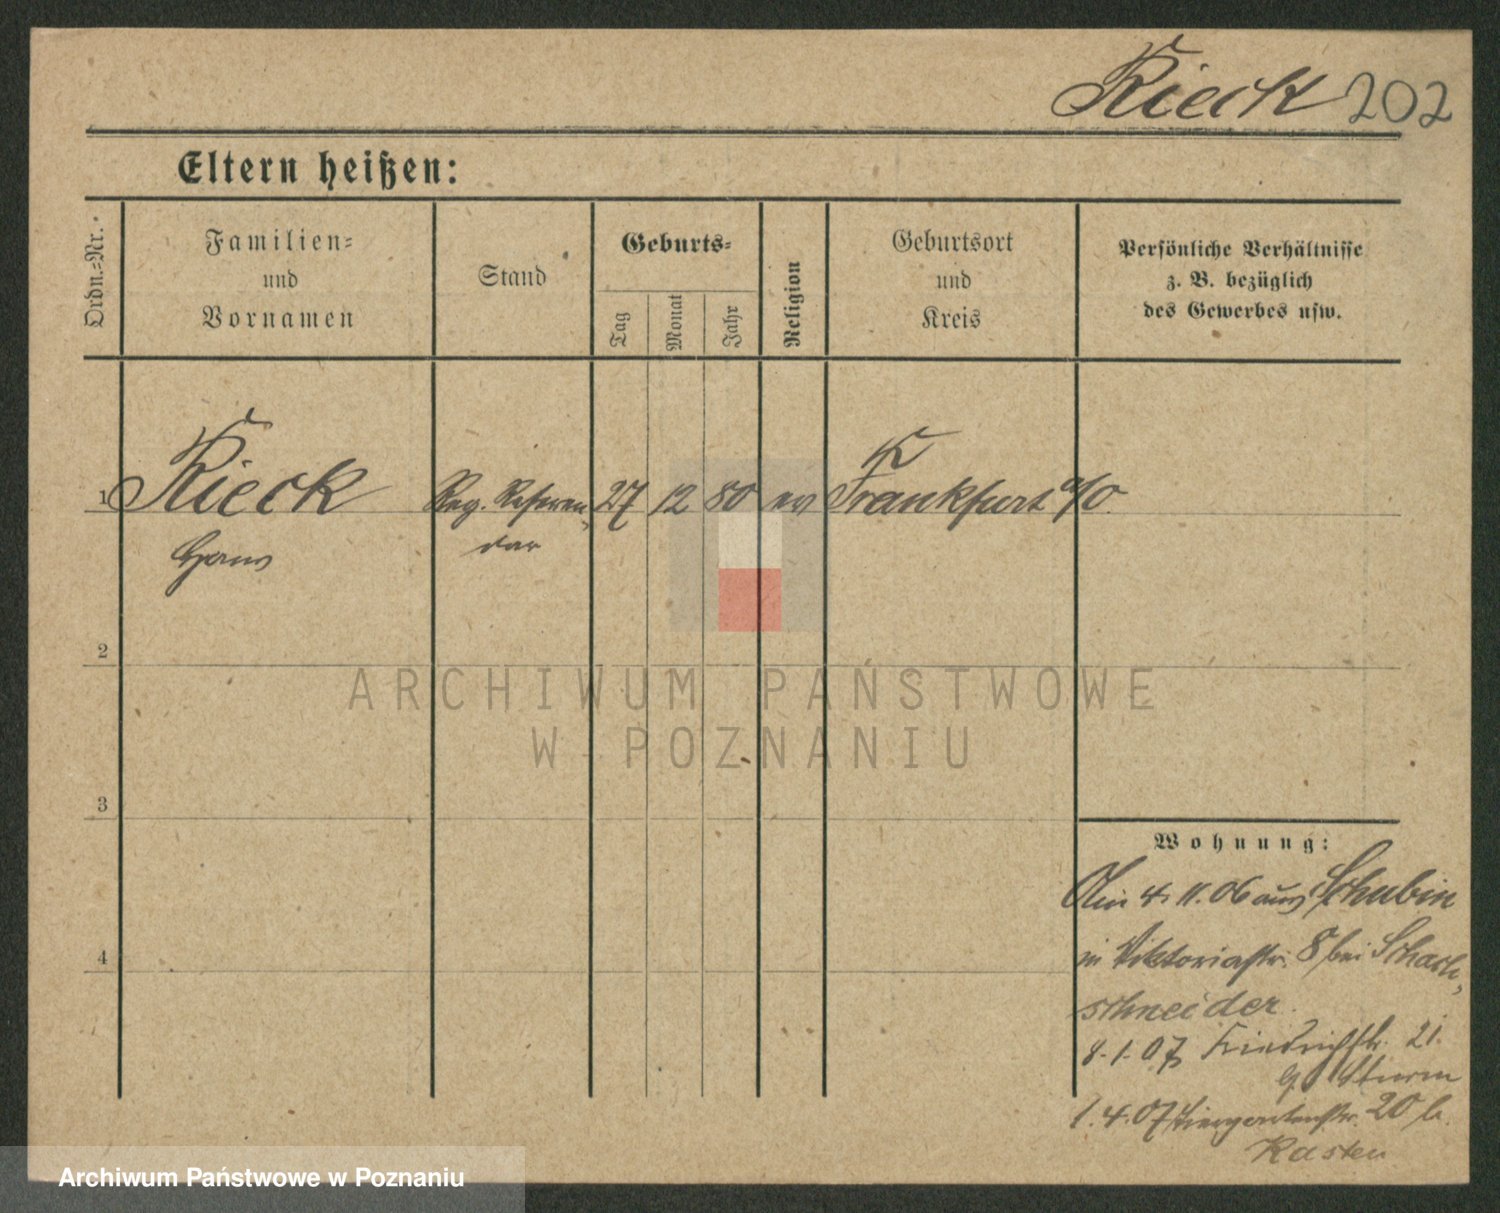 Kieck 202
Eltern heißen:
Ordn.-Nr.
Familien-
und
Vornamen
Stand
Geburts-
Tag
Monat
Jahr
Religion
Geburtsort
und
Kreis
Persönliche Verhältnisse
z. B. bezüglich
des Gewerbes usw.
1 Kieck Reg. Referen- 27 12 80 ev Frankfurt a/O.
K
Hans dar
2
3
4
Wohnung:
4. 11. 06 aus Schubin
in Viktoriastr. 8 bei Scharf-
schneider.
8.1.07 Friedrichstr. 21.
Sturm
1.4.07 Tiergartenstr. 20 b.
Kasten
ARCHIWUM PAŃSTWOWE
W POZNANIU
Archiwum Państwowe w Poznaniu